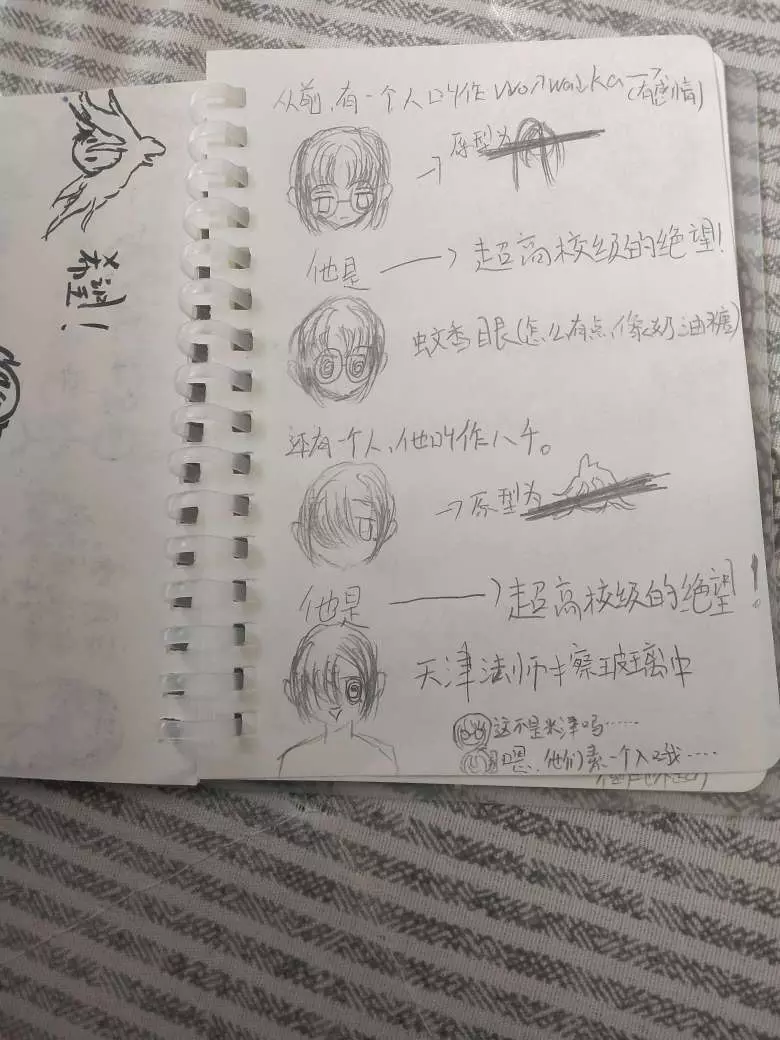 从前，有一个人叫作wowaka（有感情）
→原型为
他是→超高校级的绝望！
蚊香眼（怎么有点像奶油糖）
还有一个人，他叫作八千。
→原型为
他是→超高校级的绝望！
天津法师擦玻璃中
这不是米津吗……
嗯，他们素一个人哦……
希望！